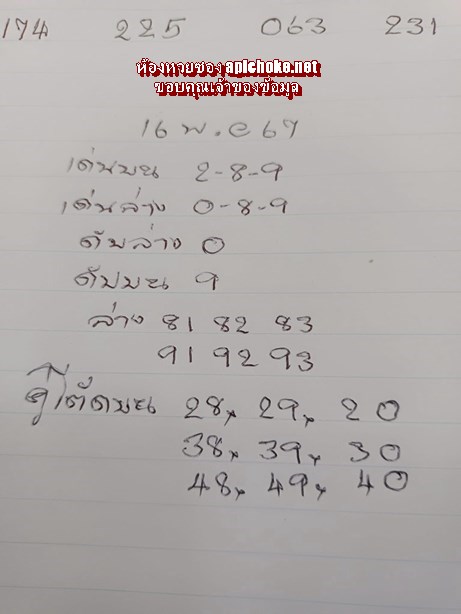 174 225 063 231
ห้องหวยซอง apichoke.net
ขอบคุณเจ้าของข้อมูล
16 พ.ย 67
เด่นบน 2-8-9
เด่นล่าง 0-8-9
ดับล่าง 0
ดับบน 9
ล่าง 81 82 83
91 92 93
คู่โต๊ดบน 28x 29x 20
38x 39x 30
48x 49x 40